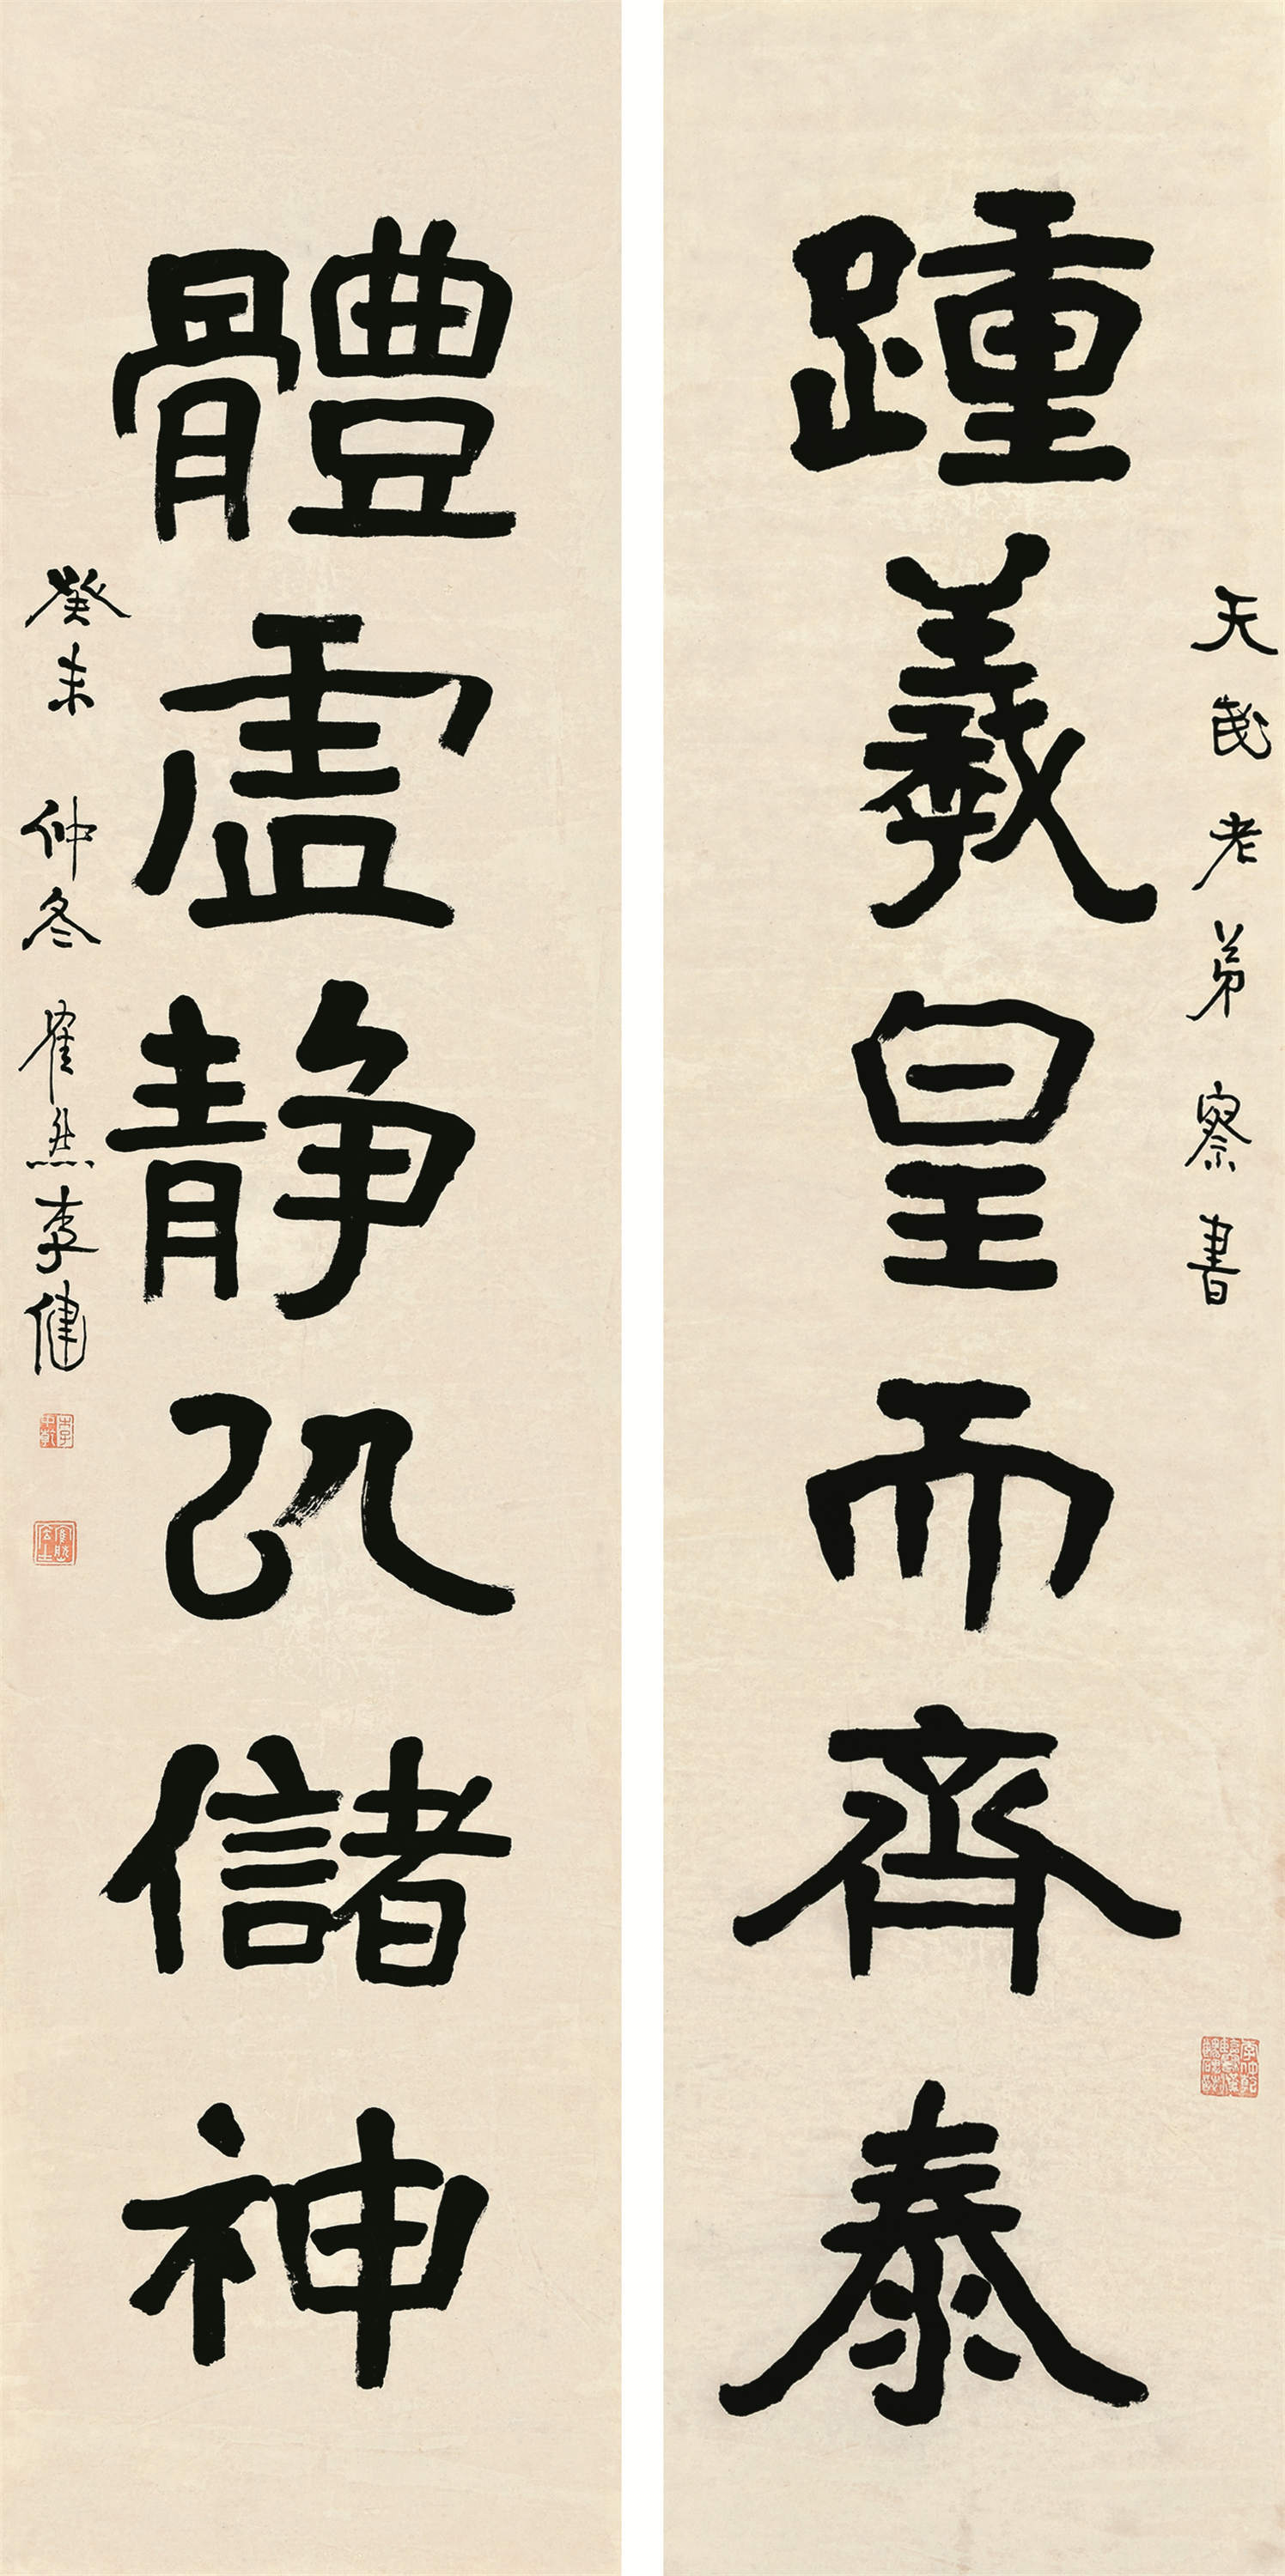 踵羲皇而齊泰
天老弟察書
體虛靜以儲神
癸未仲冬隺然李健